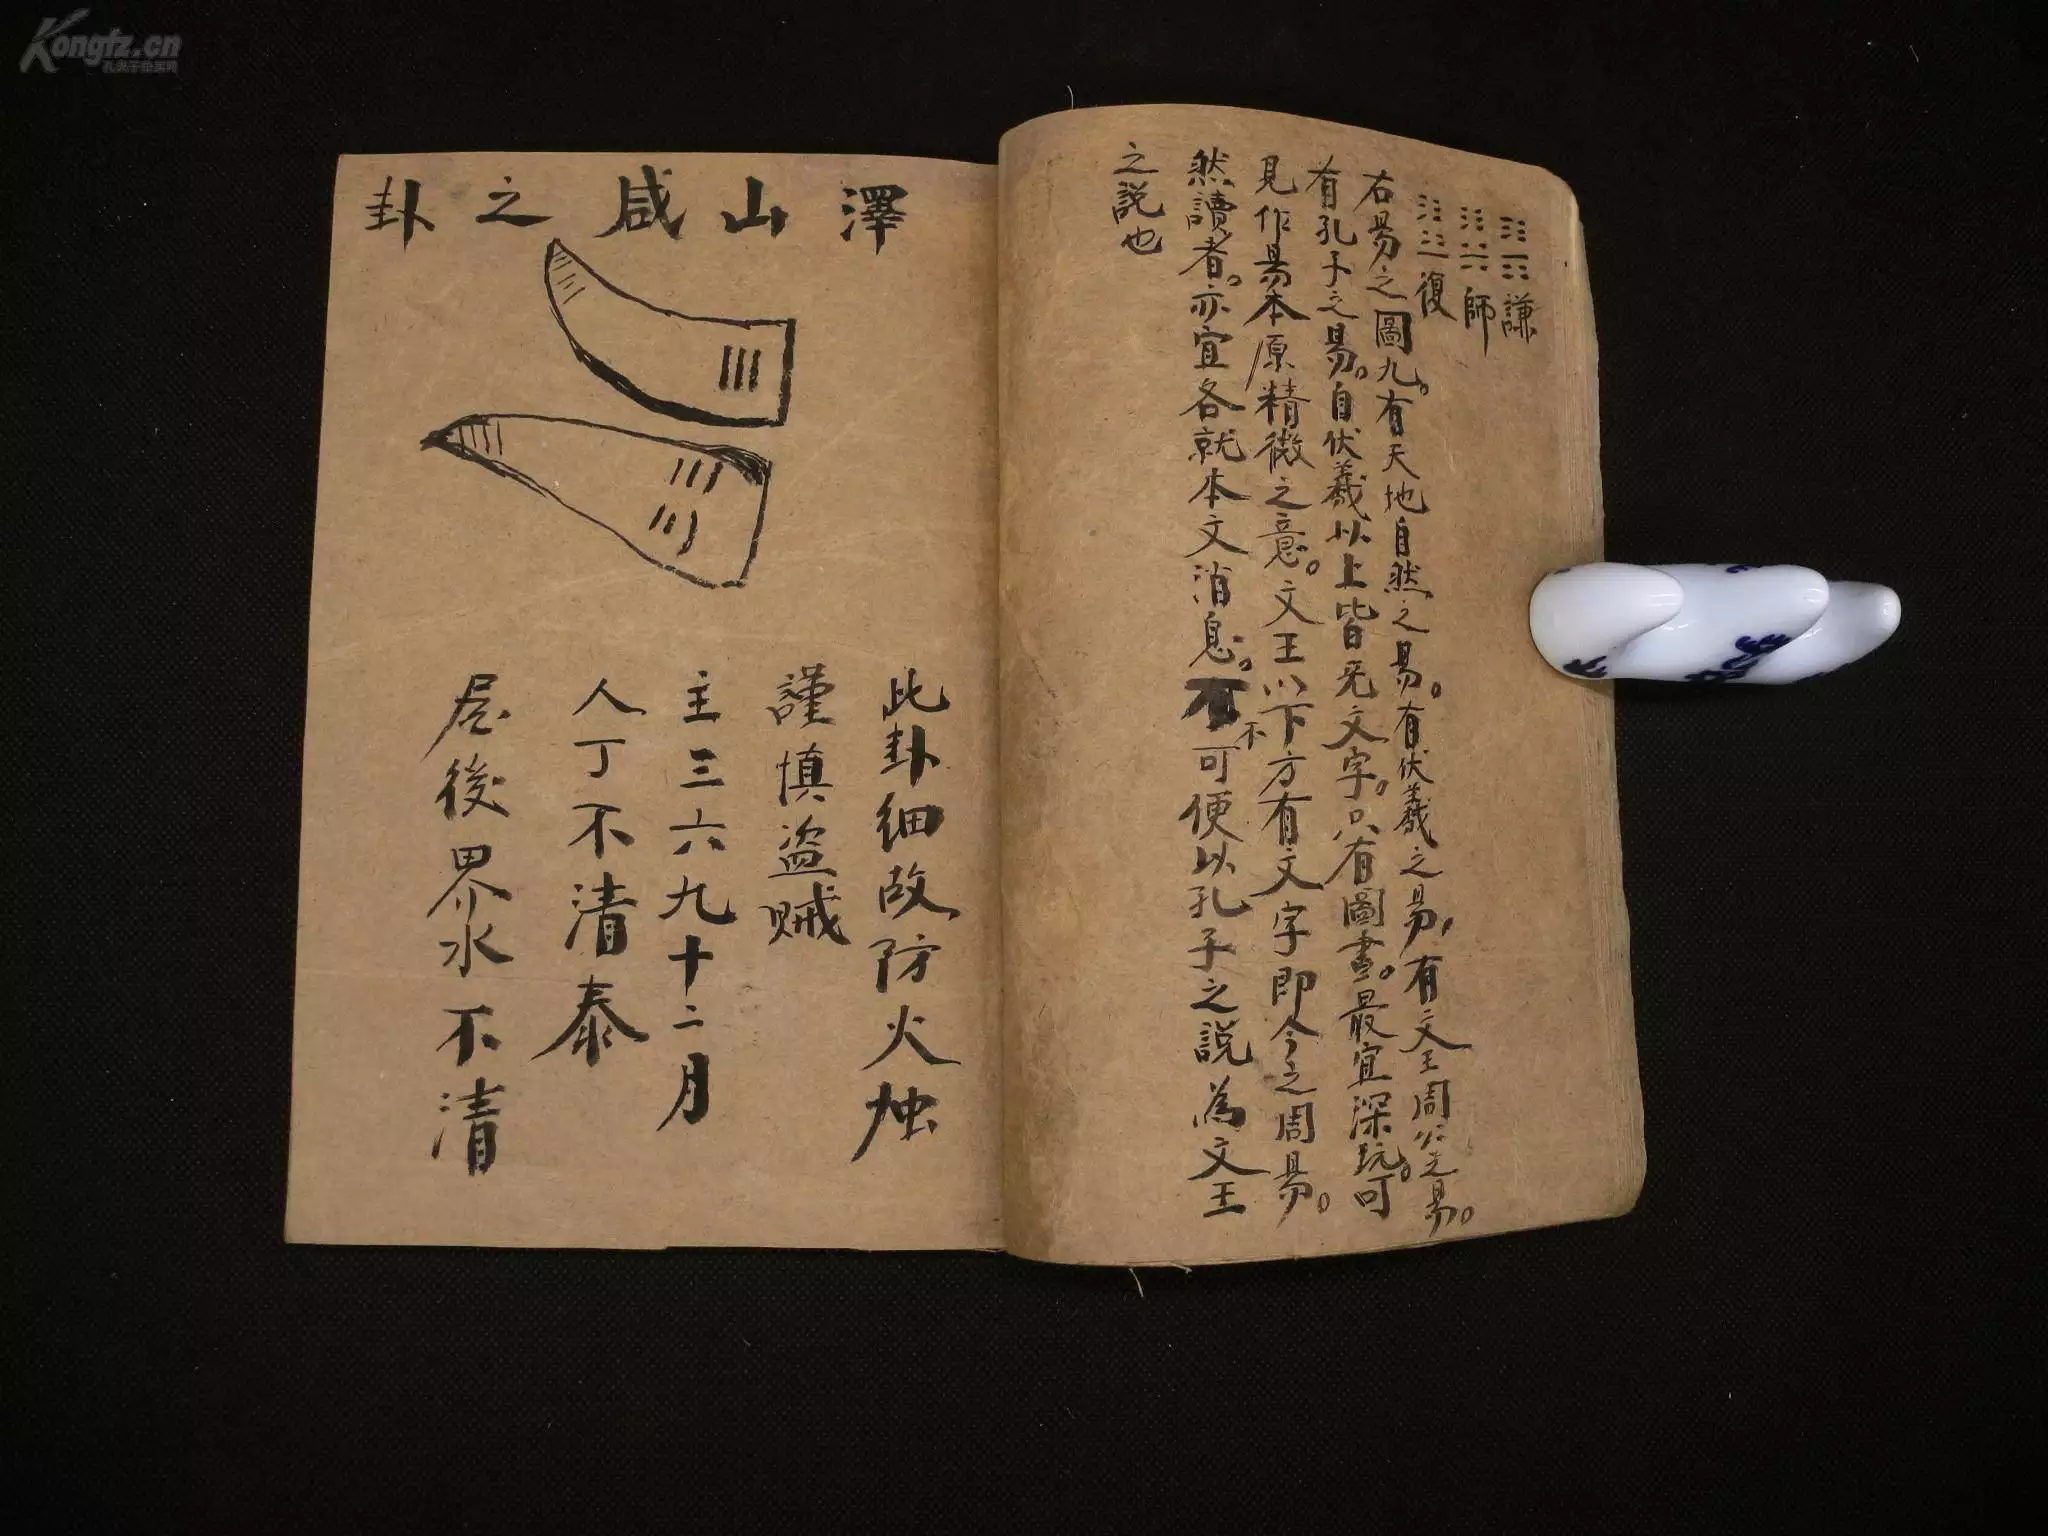 謙
師
復
右易之圖九。有天地自然之易。有伏羲之易。有文王周公之易。
有孔子之易。自伏羲以上皆无文字。只有圖畫。最宜深玩。可
見作易本原精微之意。文王以下方有文字即今之周易。
然讀者。亦宜各就本文消息。不可便以孔子之説為文王
之説也
澤山咸之卦
此卦細故防火烛
謹慎盗賊
主三六九十二月
人丁不清泰
屋後界水不清
Kongfz.cn